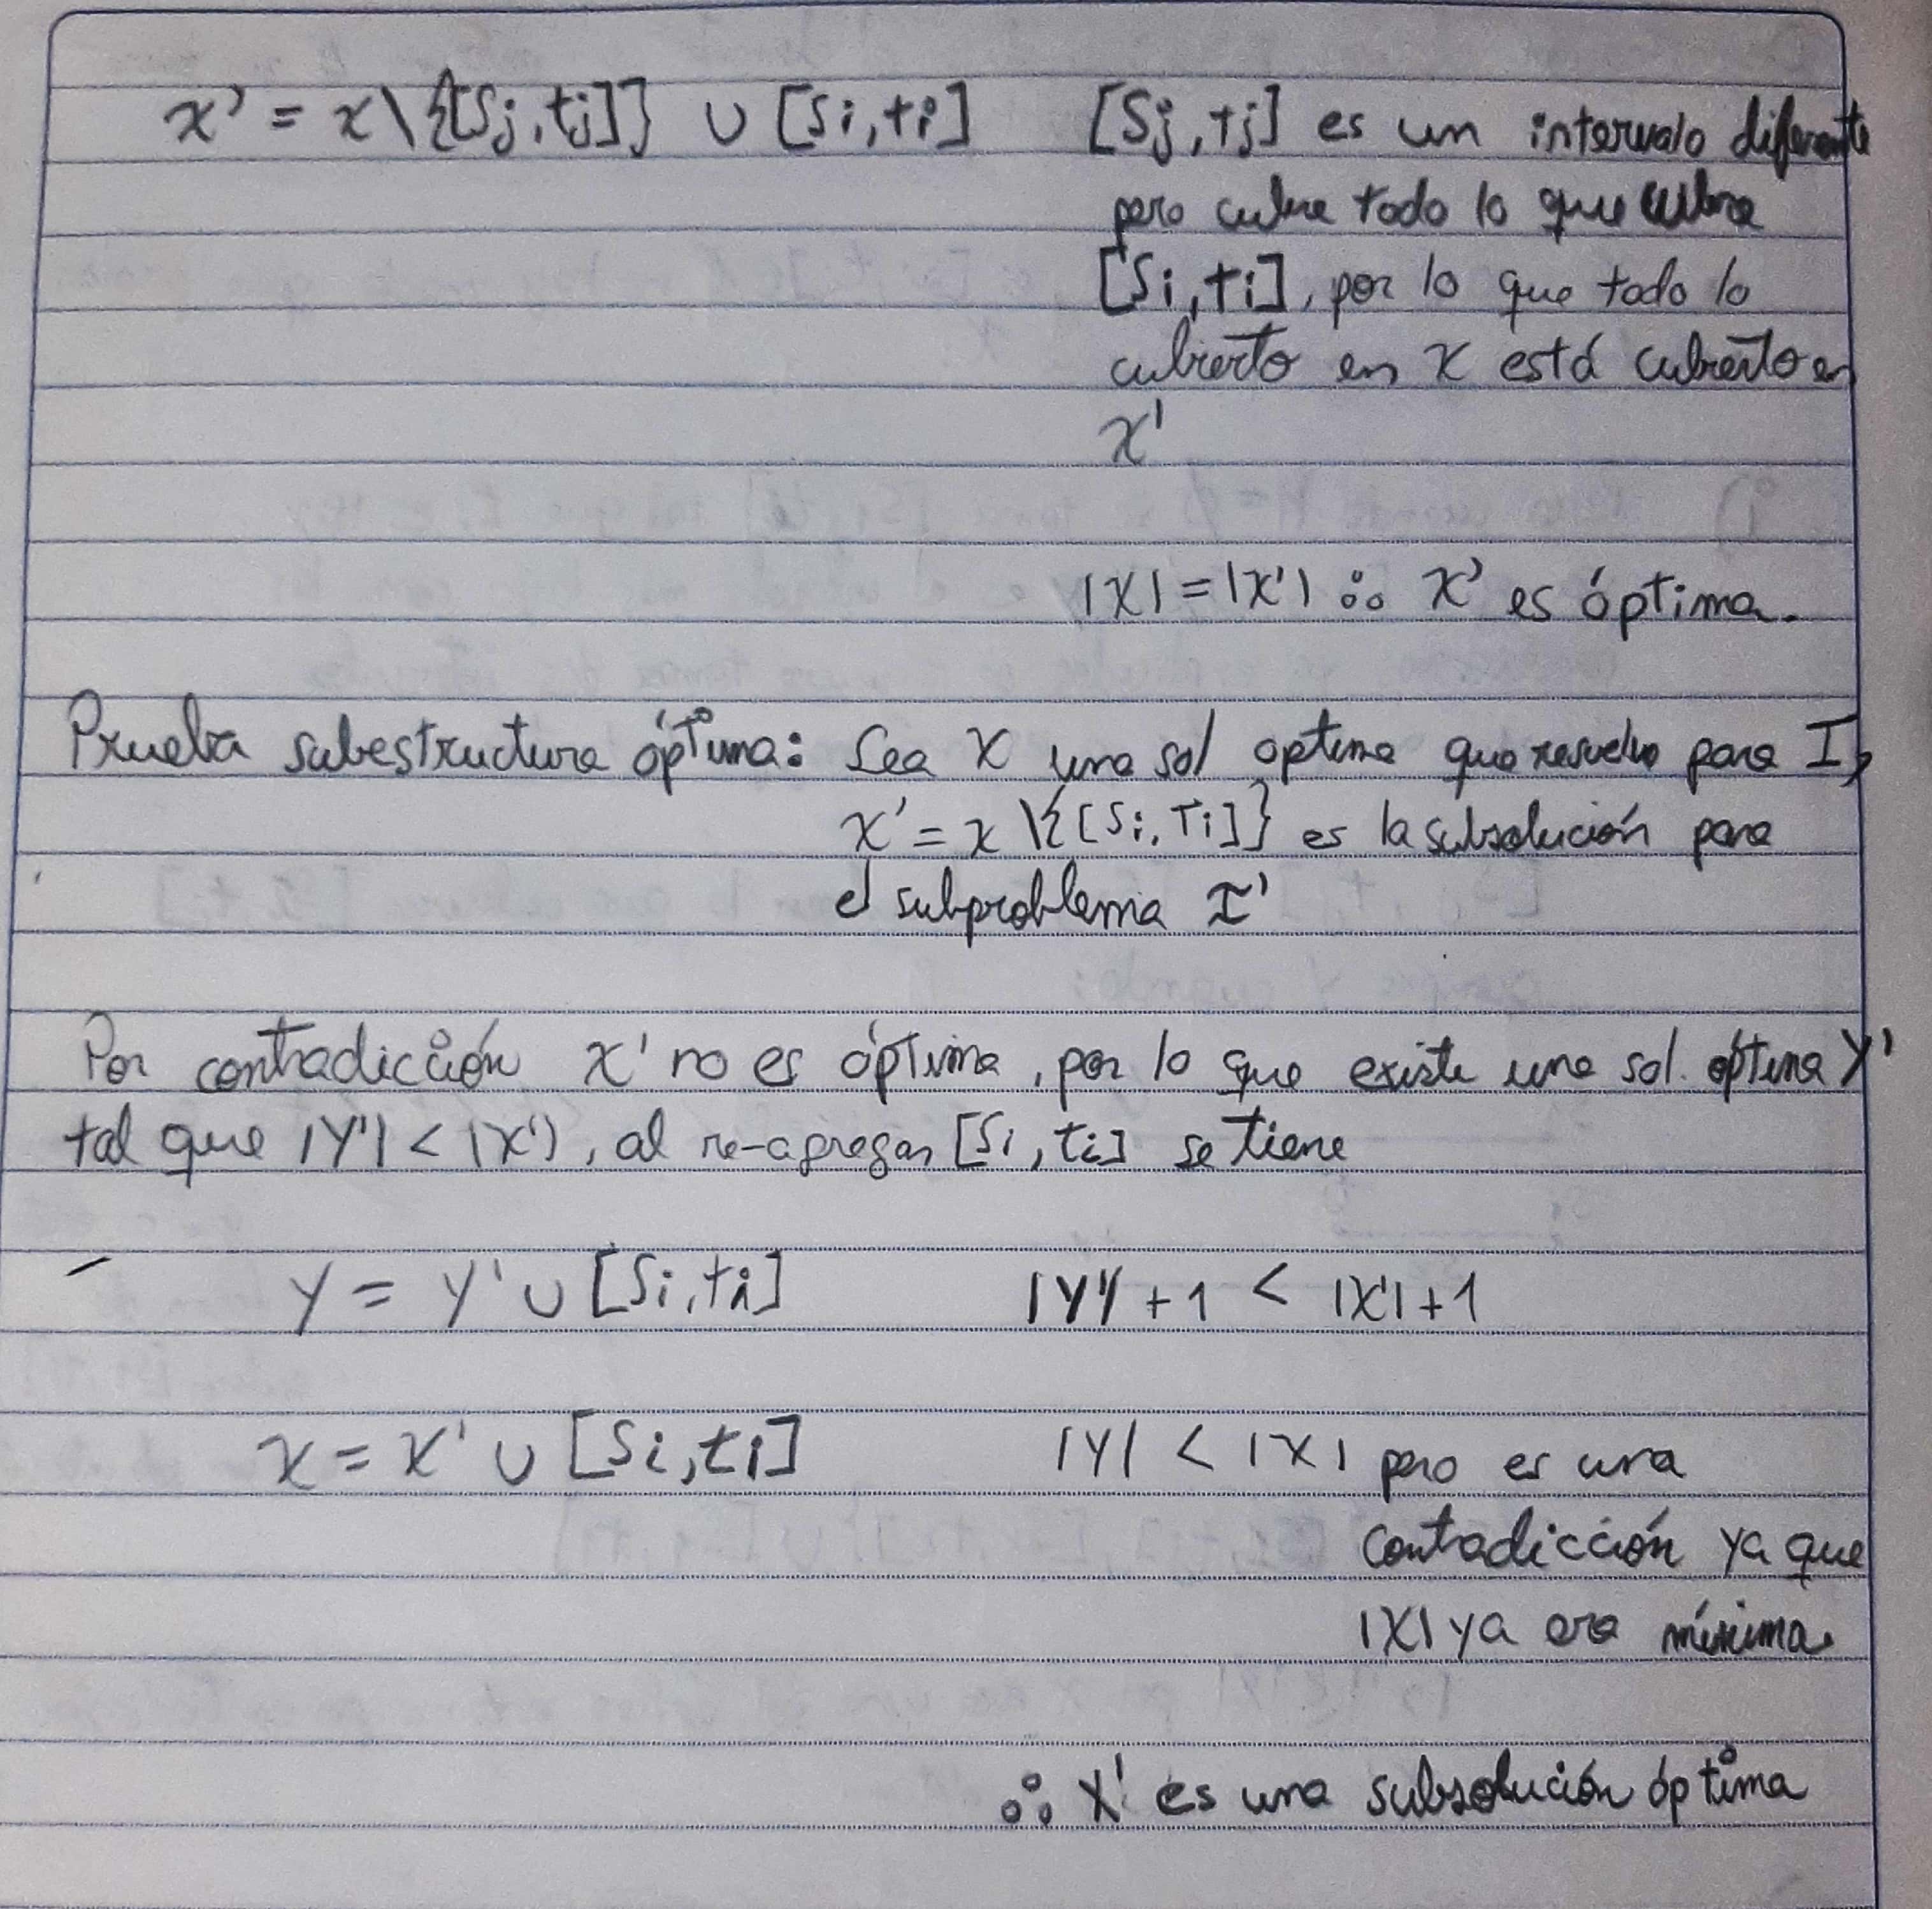 x' = x \ {[Sj, tj]} ∪ [Si, ti]
[Sj, tj] es un intervalo diferente
pero cubre todo lo que cubre
[Si, ti], por lo que todo lo
cubierto en X está cubierto en
X'
|X| = |X'| ∴ X' es óptima.
Prueba subestructura óptima: Sea X una sol optima que resuelve para I,
X' = x \ {[Si, Ti]} es la subsolución para
el subproblema I'
Por contradicción X' no es óptima, por lo que existe una sol. óptima Y'
tal que |Y'| < |X'|, al re-agregar [Si, ti] se tiene
Y = Y' ∪ [Si, ti] |Y'| + 1 < |X'| + 1
X = X' ∪ [Si, ti] |Y| < |X| pero es una
contradicción ya que
|X| ya era mínima.
∴ X' es una subsolución óptima